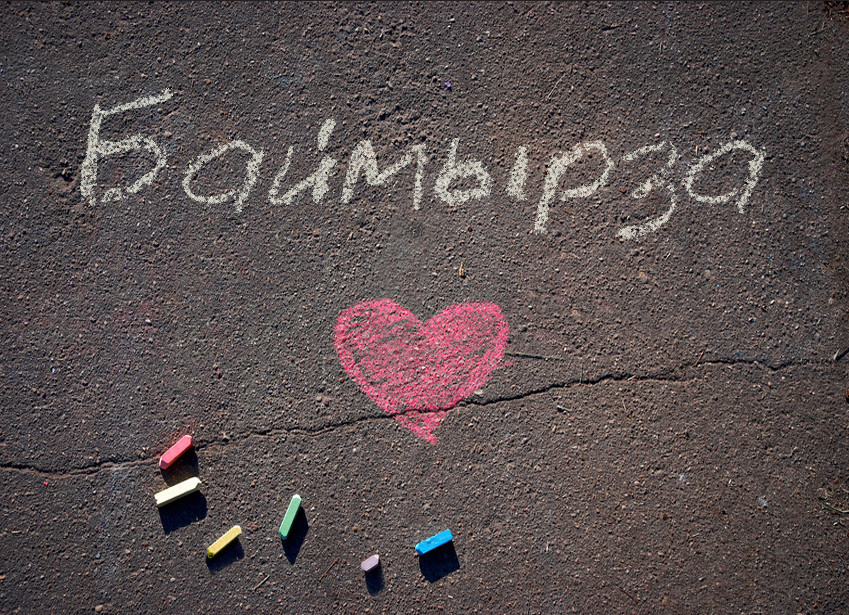 Баймырза